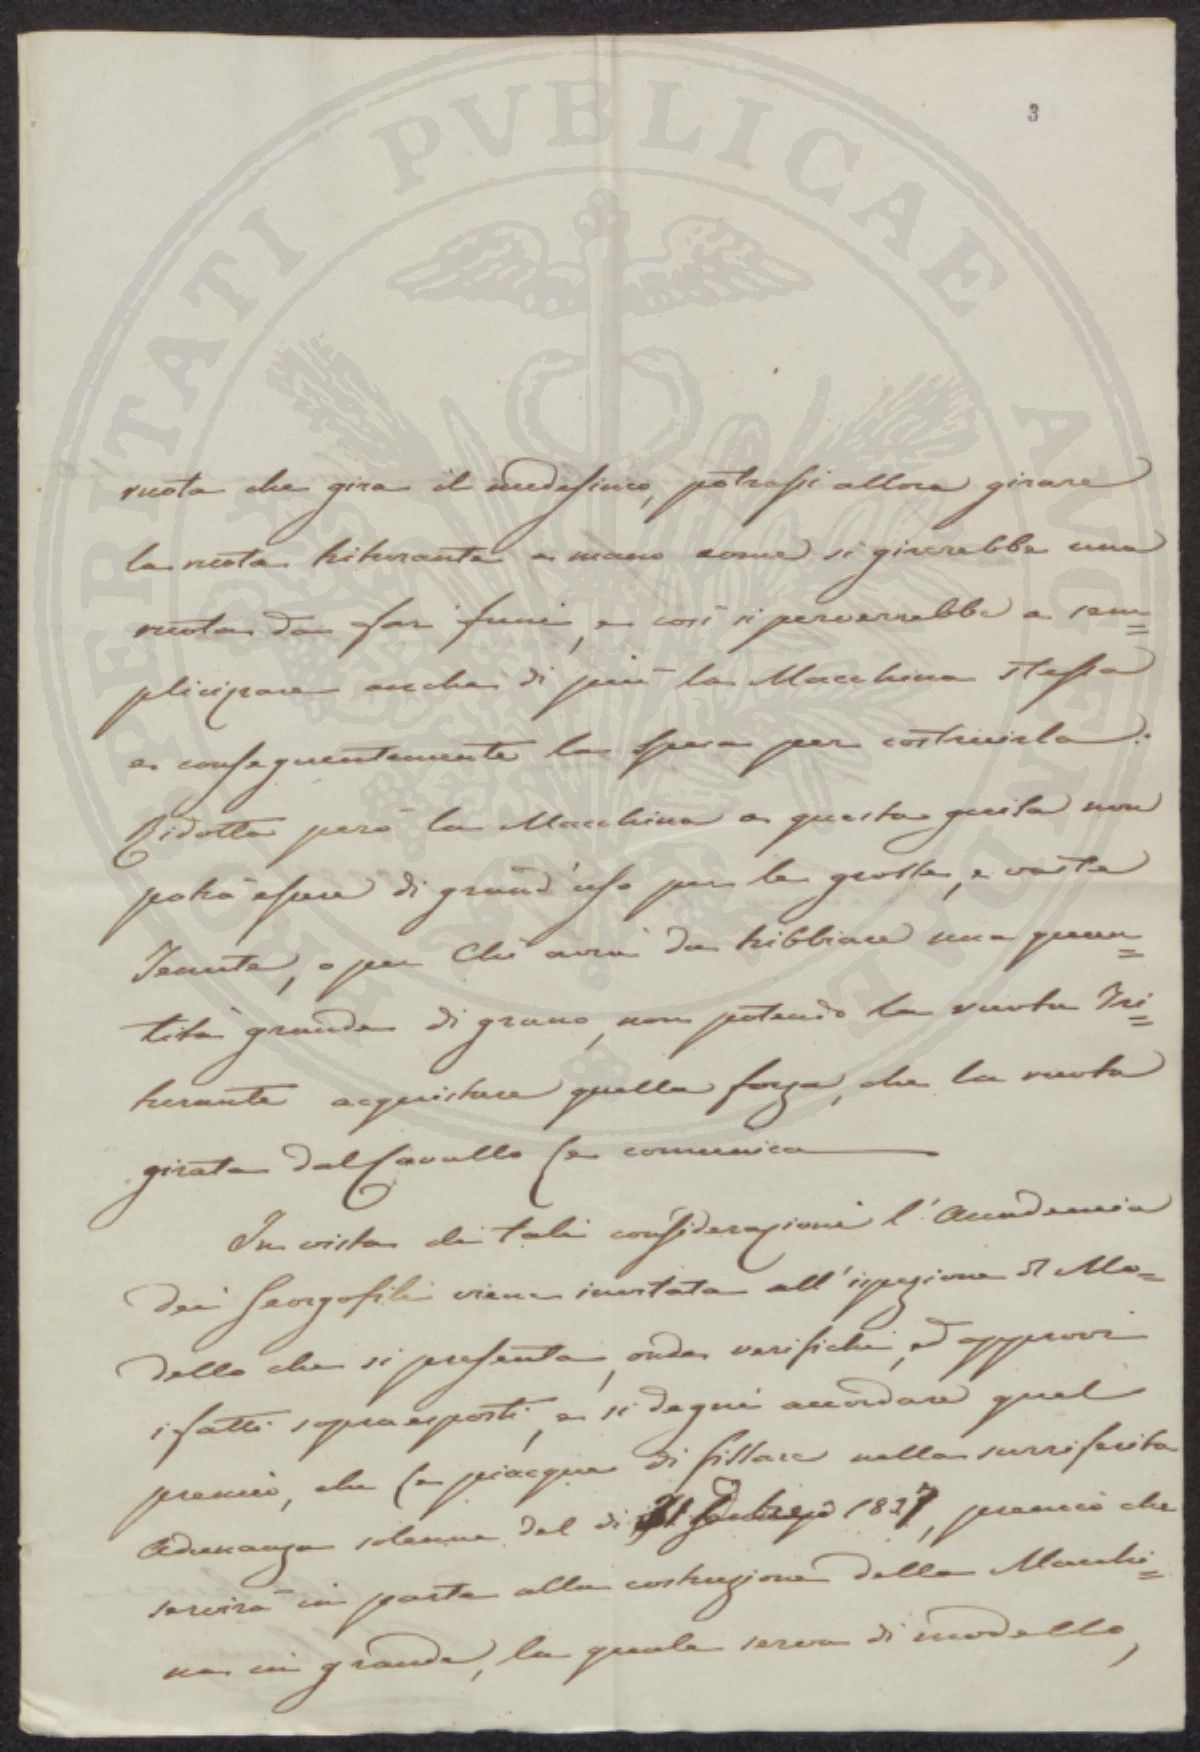 3
PROSPERITATI PVBLICAE AVGENDAE
ruota che gira il medesimo, potrassi allora girare
la ruota triturante a mano come si girerebbe una
ruota da far funi, e così si perverrebbe a sem=
plicizzare anche di più la Macchina stessa
e conseguentemente la spesa per costruirla.
Ridotta però la Macchina a questa guisa non
potrà essere di grand'uso per le grosse, e vaste
Tenute, o per Chi avrà da tribbiare una quan=
tità grande di grano, non potendo la ruota Tri=
turante acquistare quella forza, che la ruota
girata dal Cavallo le comunica
In vista di tali considerazioni l'Accademia
dei Georgofili viene invitata all'ispezione del Mo=
dello che si presenta, onde verifichi, ed approvi
i fatti sopraesposti, e si degni accordare quel
premio, che le piacque di fissare nella surriferita
Adunanza solenne del dì 1837, premio che
servirà in parte alla costruzione della Macchi=
na in grande, la quale serva di modello,